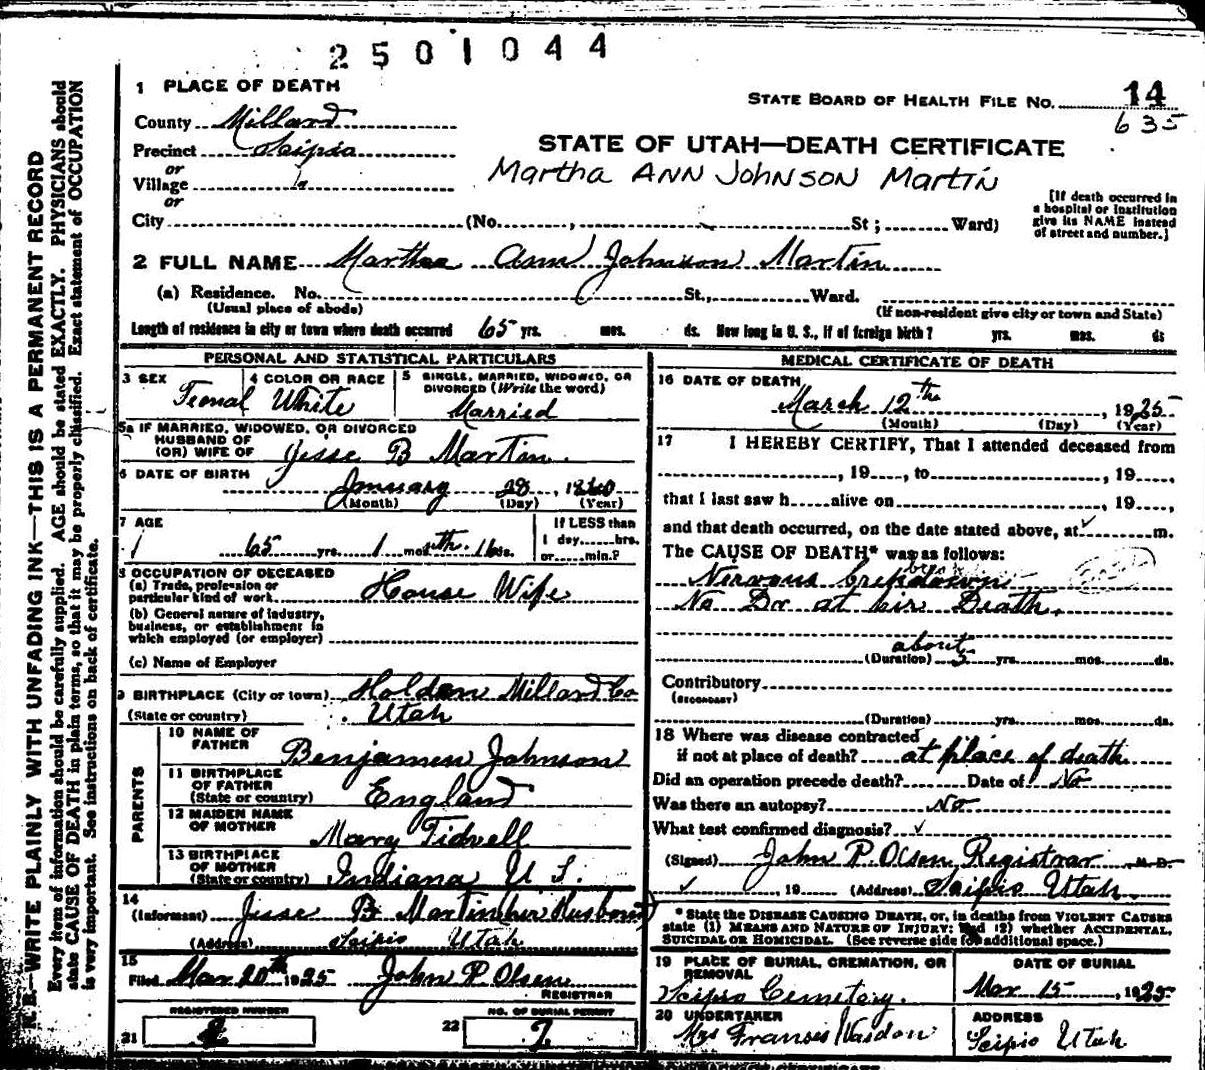 2501044
1 PLACE OF DEATH
STATE BOARD OF HEALTH FILE NO. 14
635
County Millard
Precinct Scipio
or
Village
or
STATE OF UTAH—DEATH CERTIFICATE
Martha ANN JOHNSON MARTIN
[If death occurred in a hospital or institution give its NAME instead of street and number.]
City (No. , St; Ward)
2 FULL NAME Martha Ann Johnson Martin
(a) Residence. No. St., Ward.
(Usual place of abode) (If non-resident give city or town and State)
Length of residence in city or town where death occurred 65 yrs. mos. ds. How long in U. S., if of foreign birth? yrs. mos. ds
PERSONAL AND STATISTICAL PARTICULARS
3 SEX Femal
4 COLOR OR RACE White
5 SINGLE, MARRIED, WIDOWED, OR DIVORCED (Write the word)
Married
5a IF MARRIED, WIDOWED, OR DIVORCED
HUSBAND OF
(OR) WIFE OF Jesse B Martin.
6 DATE OF BIRTH
January 28, 18
(Month) (Day) (Year)
7 AGE
65 yrs. 1 mos.
If LESS than
1 day hrs.
or min.?
8 OCCUPATION OF DECEASED
(a) Trade, profession or particular kind of work House Wife
(b) General nature of industry, business, or establishment in which employed (or employer)
(c) Name of Employer
9 BIRTHPLACE (City or town) Holden Millard Co
(State or country) Utah
PARENTS
10 NAME OF FATHER Benjamen Johnson
11 BIRTHPLACE OF FATHER (State or country) England
12 MAIDEN NAME OF MOTHER Mary Tidwell
13 BIRTHPLACE OF MOTHER (State or country) Indiana U S.
14 (Informant) Jesse B Martin (her Husband)
(Address) Scipio Utah
15 Filed Mar 20th 1925 John P. Olsen
REGISTRAR
REGISTERED NUMBER
21
NO. OF BURIAL PERMIT
22 7
MEDICAL CERTIFICATE OF DEATH
16 DATE OF DEATH
March 12th, 1925
(Month) (Day) (Year)
17 I HEREBY CERTIFY, That I attended deceased from
, 19 , to , 19 ,
that I last saw h alive on , 19 ,
and that death occurred, on the date stated above, at m.
The CAUSE OF DEATH* was as follows:
Nervous brekdown
No Dr at hir Death.
about
(Duration) 5 yrs. mos. ds.
Contributory
(SECONDARY)
(Duration) yrs. mos. ds.
18 Where was disease contracted
if not at place of death? at place of death
Did an operation precede death? Date of No
Was there an autopsy? No
What test confirmed diagnosis?
(Signed) John P. Olsen Registrar M. D.
, 19 (Address) Scipio Utah
* State the DISEASE CAUSING DEATH, or, in deaths from VIOLENT CAUSES
state (1) MEANS AND NATURE OF INJURY; and (2) whether ACCIDENTAL,
SUICIDAL OR HOMICIDAL. (See reverse side for additional space.)
19 PLACE OF BURIAL, CREMATION, OR REMOVAL
Scipio Cemetery.
DATE OF BURIAL
Mar 15, 1925
20 UNDERTAKER
Mrs Franses
ADDRESS
Scipio Utah
N. B.—WRITE PLAINLY WITH UNFADING INK—THIS IS A PERMANENT RECORD
Every item of information should be carefully supplied. AGE should be stated EXACTLY. PHYSICIANS should
state CAUSE OF DEATH in plain terms, so that it may be properly classified. Exact statement of OCCUPATION
is very important. See instructions on back of certificate.